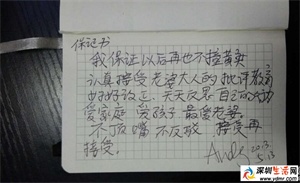 保证书
我保证以后再也不撞黄奂
认真接受老婆大人的批评教育
好好改正、天天反思自己的行动
爱家庭 爱孩子 最爱老婆。
不顶嘴 不反驳 接受再
接受。
Ande 2013.
5.13
深圳生活网
www.ydmr.com